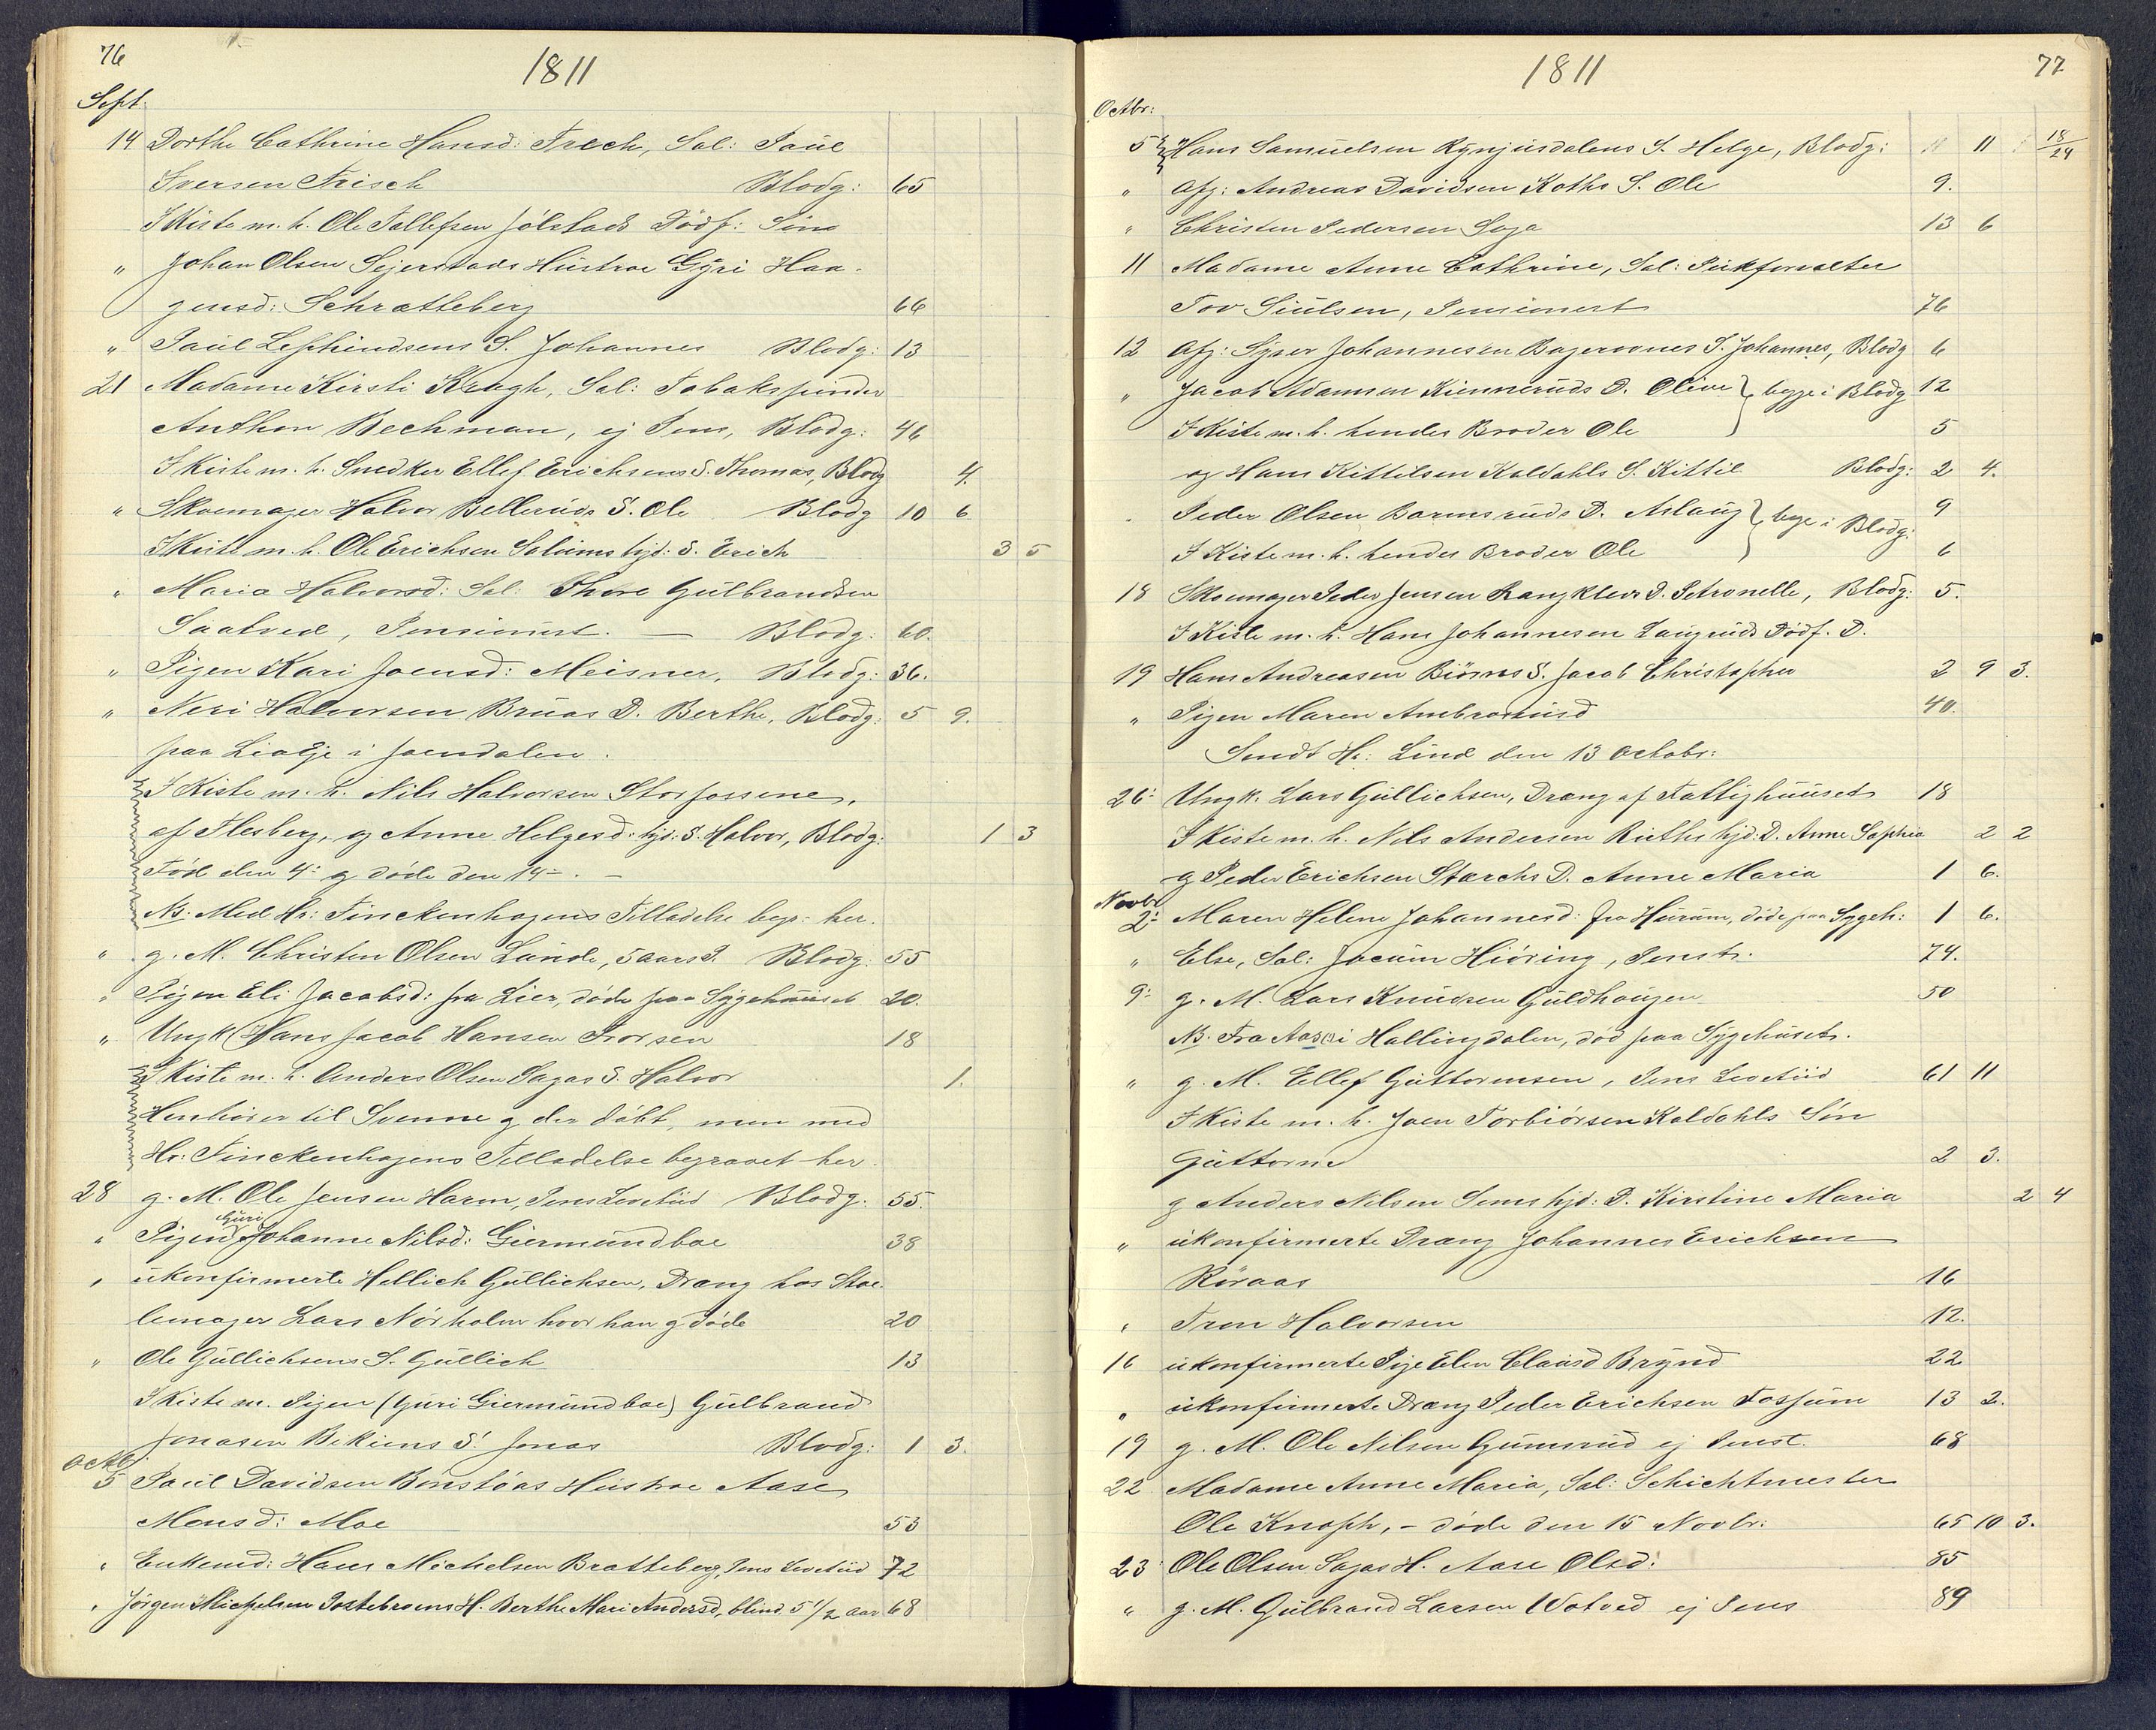 76
1811
Sept.
14 Dorthe Cathrine Hansd: Frech, Sal: Paül
Iversen Frisch Blodg: 65
I Kiste m. h. Ole Tollefsen Jölstads Dödf: Sön
" Johan Olsen Sejerstads Hüstroe Gÿri Haa-
gensd: Schratteberg 66
" Paül Lephindsens S. Johannes Blodg: 13
21 Madame Kirsti Kragh, Sal: Tobakspinder
Anthon Bechman, ej Pens, Blodg: 46
I Kiste m. h. Snedker Ellef Erichsens S. Thomas, Blodg 4.
" Skoemager Halvor Bellerüds S. Ole Blodg 10 6
I Kiste m. h. Ole Erichsen Solüms hjd: S. Erich 3 5
" Maria Halvorsd: Sal: Thore Gülbrandsen
Saatved, Pensionist. — Blodg: 60.
" Pigen Kari Joensd: Meisner, Blodg: 36.
" Neri Halvorsen Brüas D. Berthe, Blodg: 5 9.
paa Lia Eje i Joendalen.
I Kiste m. h. Nils Halvorsen Storfossene,
af Flesberg, og Anne Helgesd. hjd: S. Halvor, Blodg: 1 3
Fød den 4: g døde den 14-. —
NB. Med Hr: Finckenhagens Tilladelse begr: her.
" g. M. Christen Olsen Lünde, 5 aars P. Blodg: 55
" Pigen Eli Jacobsd: fra Lier, döde paa Sÿgehüüset 20.
" Ungk Hans Jacob Hansen Trorsen 18
I Kiste m. h. Anders Olsen Sagas S. Halvor 1.
Henhörer til Svenne g der döbt, men med
Hr: Finckenhagens Tilladelse begravet her.
28 g. M. Ole Jensen Harm, Pens Levetiid Blodg. 55.
Güri
" Pigen Johanne Nilsd: Giermündboe 38
" ükonfirmerte Hellich Güllichsen, Dreng hos Stoe-
lemager Lars Nörholm hvor han g döde 20
" Ole Güllichsens S. Güllich 13
I Kiste m. Pigen (Güri Giermündboe) Gülbrand
Jonasen Bekiens S. Jonas Blodg: 1 3.
Octbr:
5 Paül Davidsen Bönstöas Hüstroe Aase
Monsd: Moe 53
" Enkemd: Hans Michelsen Bratteberg, Pens Levetiid 72
" Jörgen Michelsen Postebroens H. Berthe Mari Andersd, blind 5 1/2 aar 68
77
1811
Octbr:
5 Hans Samüelsen Rÿnjüsdalens S. Helge, Blodg: 11 18/24
" Afg: Andreas Davidsen Koths S. Ole 9.
" Christen Pedersen Soga 13 6
11 Madame Anne Cathrine, Sal: Pükforvalter
Tov Siülsen, Pensionist 76
12 Afg: Sÿver Johannesen Bagerovnes S. Johannes, Blodg 6
" Jacob Adamsen Kiennerüds D. Olive } begge i Blodg 12
I Kiste m. h. hendes Broder Ole 5
og Hans Kittilsen Koldahls S. Kittil Blodg: 2 4.
Peder Olsen Barmsrüds D. Aslaüg } bege i Blodg: 9
I Kiste m. h. hendes Broder Ole 6
18 Skoemager Peder Jensen Rangklevs D. Petronelle, Blodg: 5.
I Kiste m. h. Hans Johannesen Laugrüds Dödf. D.
19 Hans Andreasen Biörns S. Jacob Christopher 2 9 3.
" Pigen Maren Ambrosiüsd 40.
Sendt Hr: Lind den 13 Octobr:
26: Ungk. Lars Güllichsen, Dreng af Fattighüüset 18
I Kiste m. h. Nils Andersen Rüths hjd: D. Anne Sophia 2 2
g Peder Erichsen Starchs D. Anne Maria 1 6.
Novbr
2: Maren Helene Johannesd: fra Hürüm, döde paa Sygeh: 1 6.
" Else, Sal: Jocüm Hiöring, Penst: 74.
9: g. M. Lars Knüdsen Güldhaügen 50
NB. Fra Aas(?) i Hallingdalen, död paa Sÿgehüset.
" g. M. Ellef Güttormsen, Pens Levetiid 61 11
I Kiste m. h. Joen Torbiörsen Koldahls Sön
Güttorm 2 3.
g Anders Nilsen Sems hjd: D. Kirstine Maria 2 4
" ükonfirmerte Dreng Johannes Erichsen
Röraas 16
" Tron Halvorsen 12.
16 ükonfirmerte Pige Elen Claüsd Brÿnd 22
" ükonfirmerte Dreng Peder Erichsen Fossüm 13 2.
19 g. M. Ole Nilsen Gümsrüd ej Penst. 68
22 Madame Anne Maria, Sal: Schichtmester
Ole Knoph, - döde den 15 Novbr: 65 10 3.
23 Ole Olsen Sagas H. Aase Olsd: 85
" g. M. Gülbrand Larsen Wotved ej Pens 89